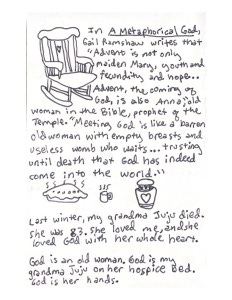 In A Metaphorical God,
Gail Ramshaw writes that
"Advent is not only
maiden Mary, youth and
fecundity and hope...
Advent, the coming of
God, is also Anna, old
woman in the Bible, prophet of the
Temple. "Meeting God is like a barren
old woman with empty breasts and
useless womb who waits... trusting
until death that God has indeed
come into the world."
Last winter, my grandma Juju died.
She was 83. She loved me, and she
loved God with her whole heart.
God is an old woman. God is my
grandma Juju on her hospice bed.
God is her hands.